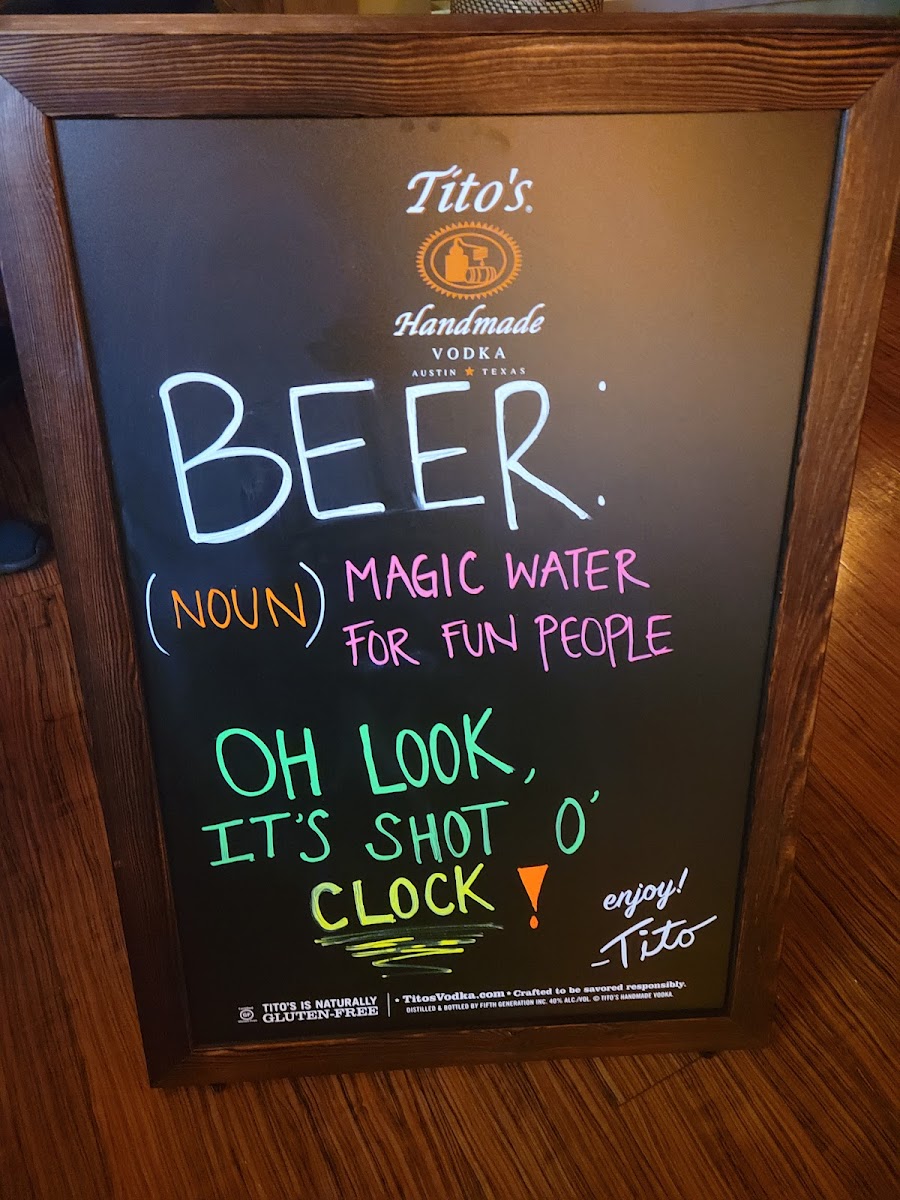 Tito's®
Handmade
VODKA
AUSTIN ★ TEXAS
BEER:
(NOUN) MAGIC WATER
FOR FUN PEOPLE
OH LOOK,
IT'S SHOT O'
CLOCK!
enjoy!
-Tito
TITO'S IS NATURALLY
GLUTEN-FREE
• TitosVodka.com • Crafted to be savored responsibly.
DISTILLED & BOTTLED BY FIFTH GENERATION INC. 40% ALC./VOL. © TITO'S HANDMADE VODKA.